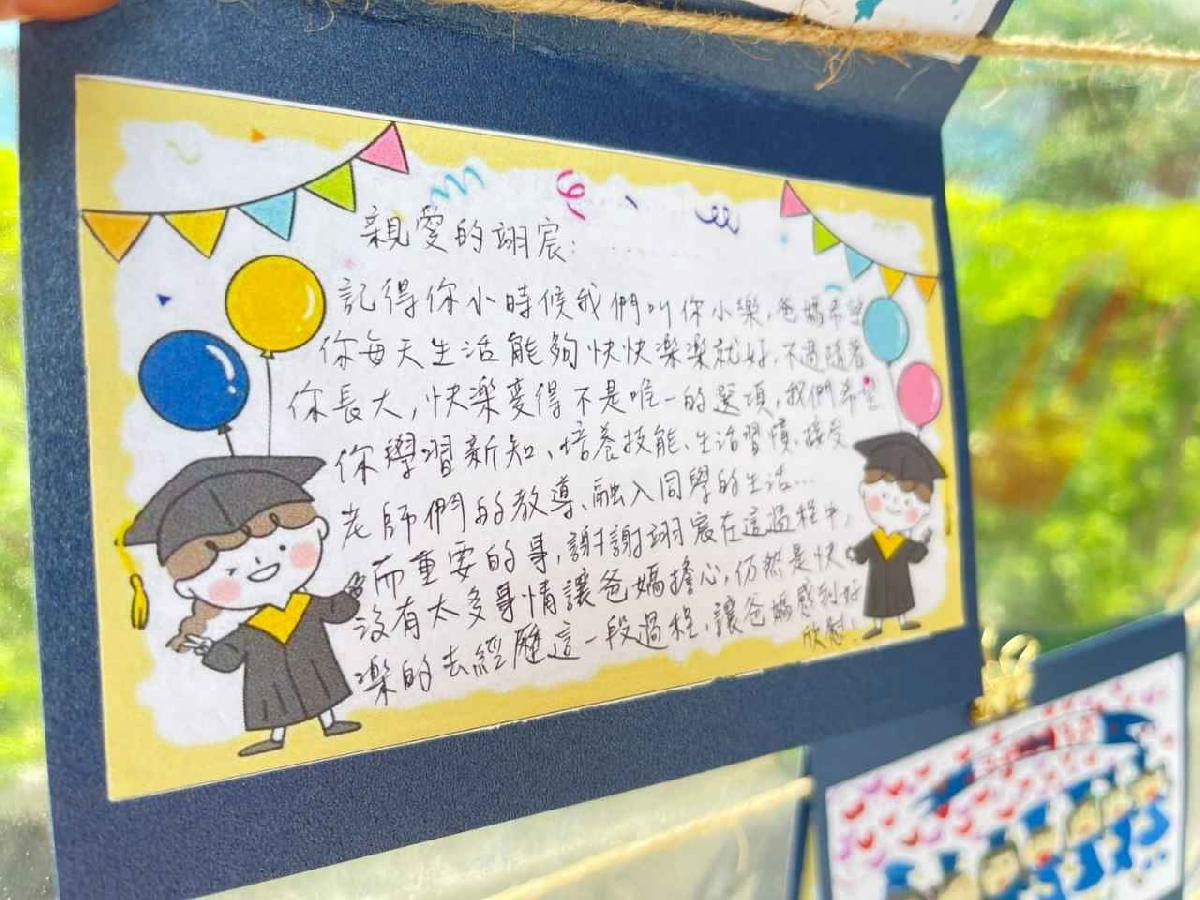 親愛的翊宸:
記得你小時候我們叫你小樂,爸媽希望
你每天生活能夠快快樂樂就好,不過隨著
你長大,快樂變得不是唯一的選項,我們希望
你學習新知、培養技能、生活習慣、接受
老師們的教導、融入同學的生活...
而重要的事,謝謝翊宸在這過程中,
沒有太多事情讓爸媽擔心,仍然是快
樂的去經歷這一段過程,讓爸媽感到好
欣慰!